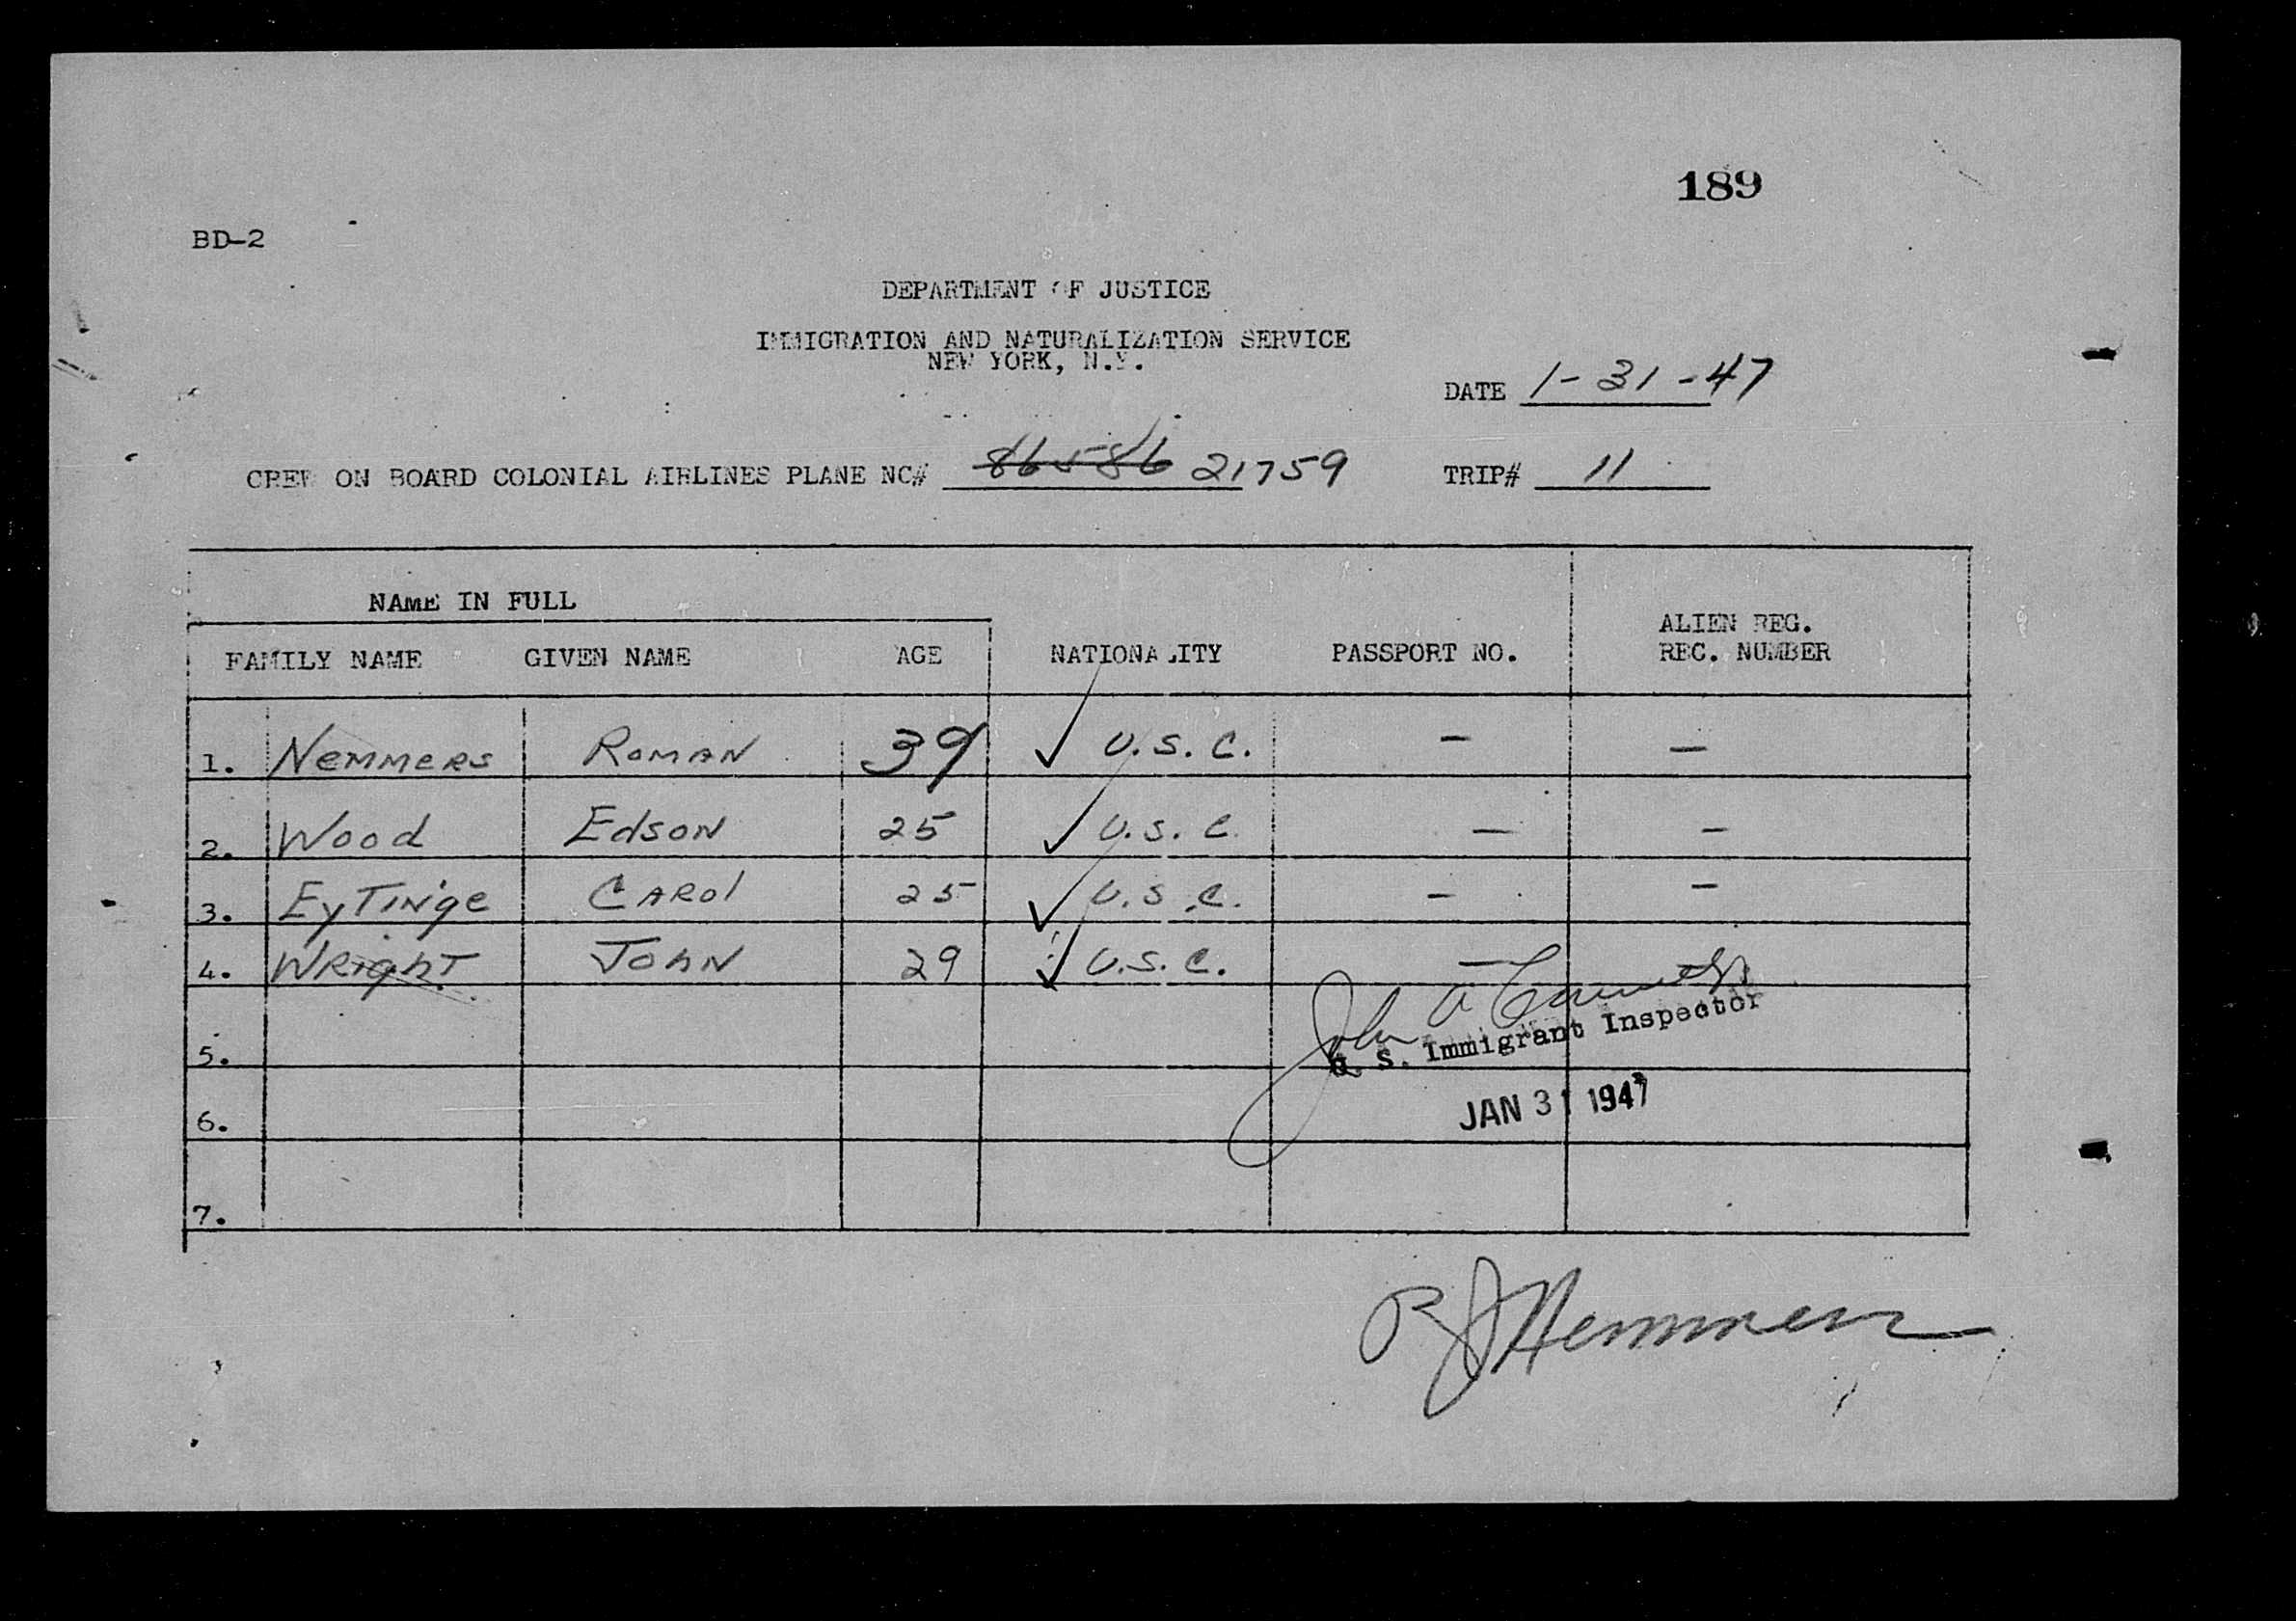 189
BD-2
DEPARTMENT OF JUSTICE
IMMIGRATION AND NATURALIZATION SERVICE
NEW YORK, N.Y.
DATE 1-31-47
CREW ON BOARD COLONIAL AIRLINES PLANE NC# 86586 21759 TRIP# 11
NAME IN FULL
FAMILY NAME GIVEN NAME AGE NATIONALITY PASSPORT NO. ALIEN REG. REC. NUMBER
1. Nemmers Roman 39 ✓ U.S.C. - -
2. Wood Edson 25 ✓ U.S.C. - -
3. Eytinge Carol 25 ✓ U.S.C. - -
4. Wright John 29 ✓ U.S.C. -
John A
U. S. Immigrant Inspector
5.
JAN 31 1947
6.
7.
R J Nemmers